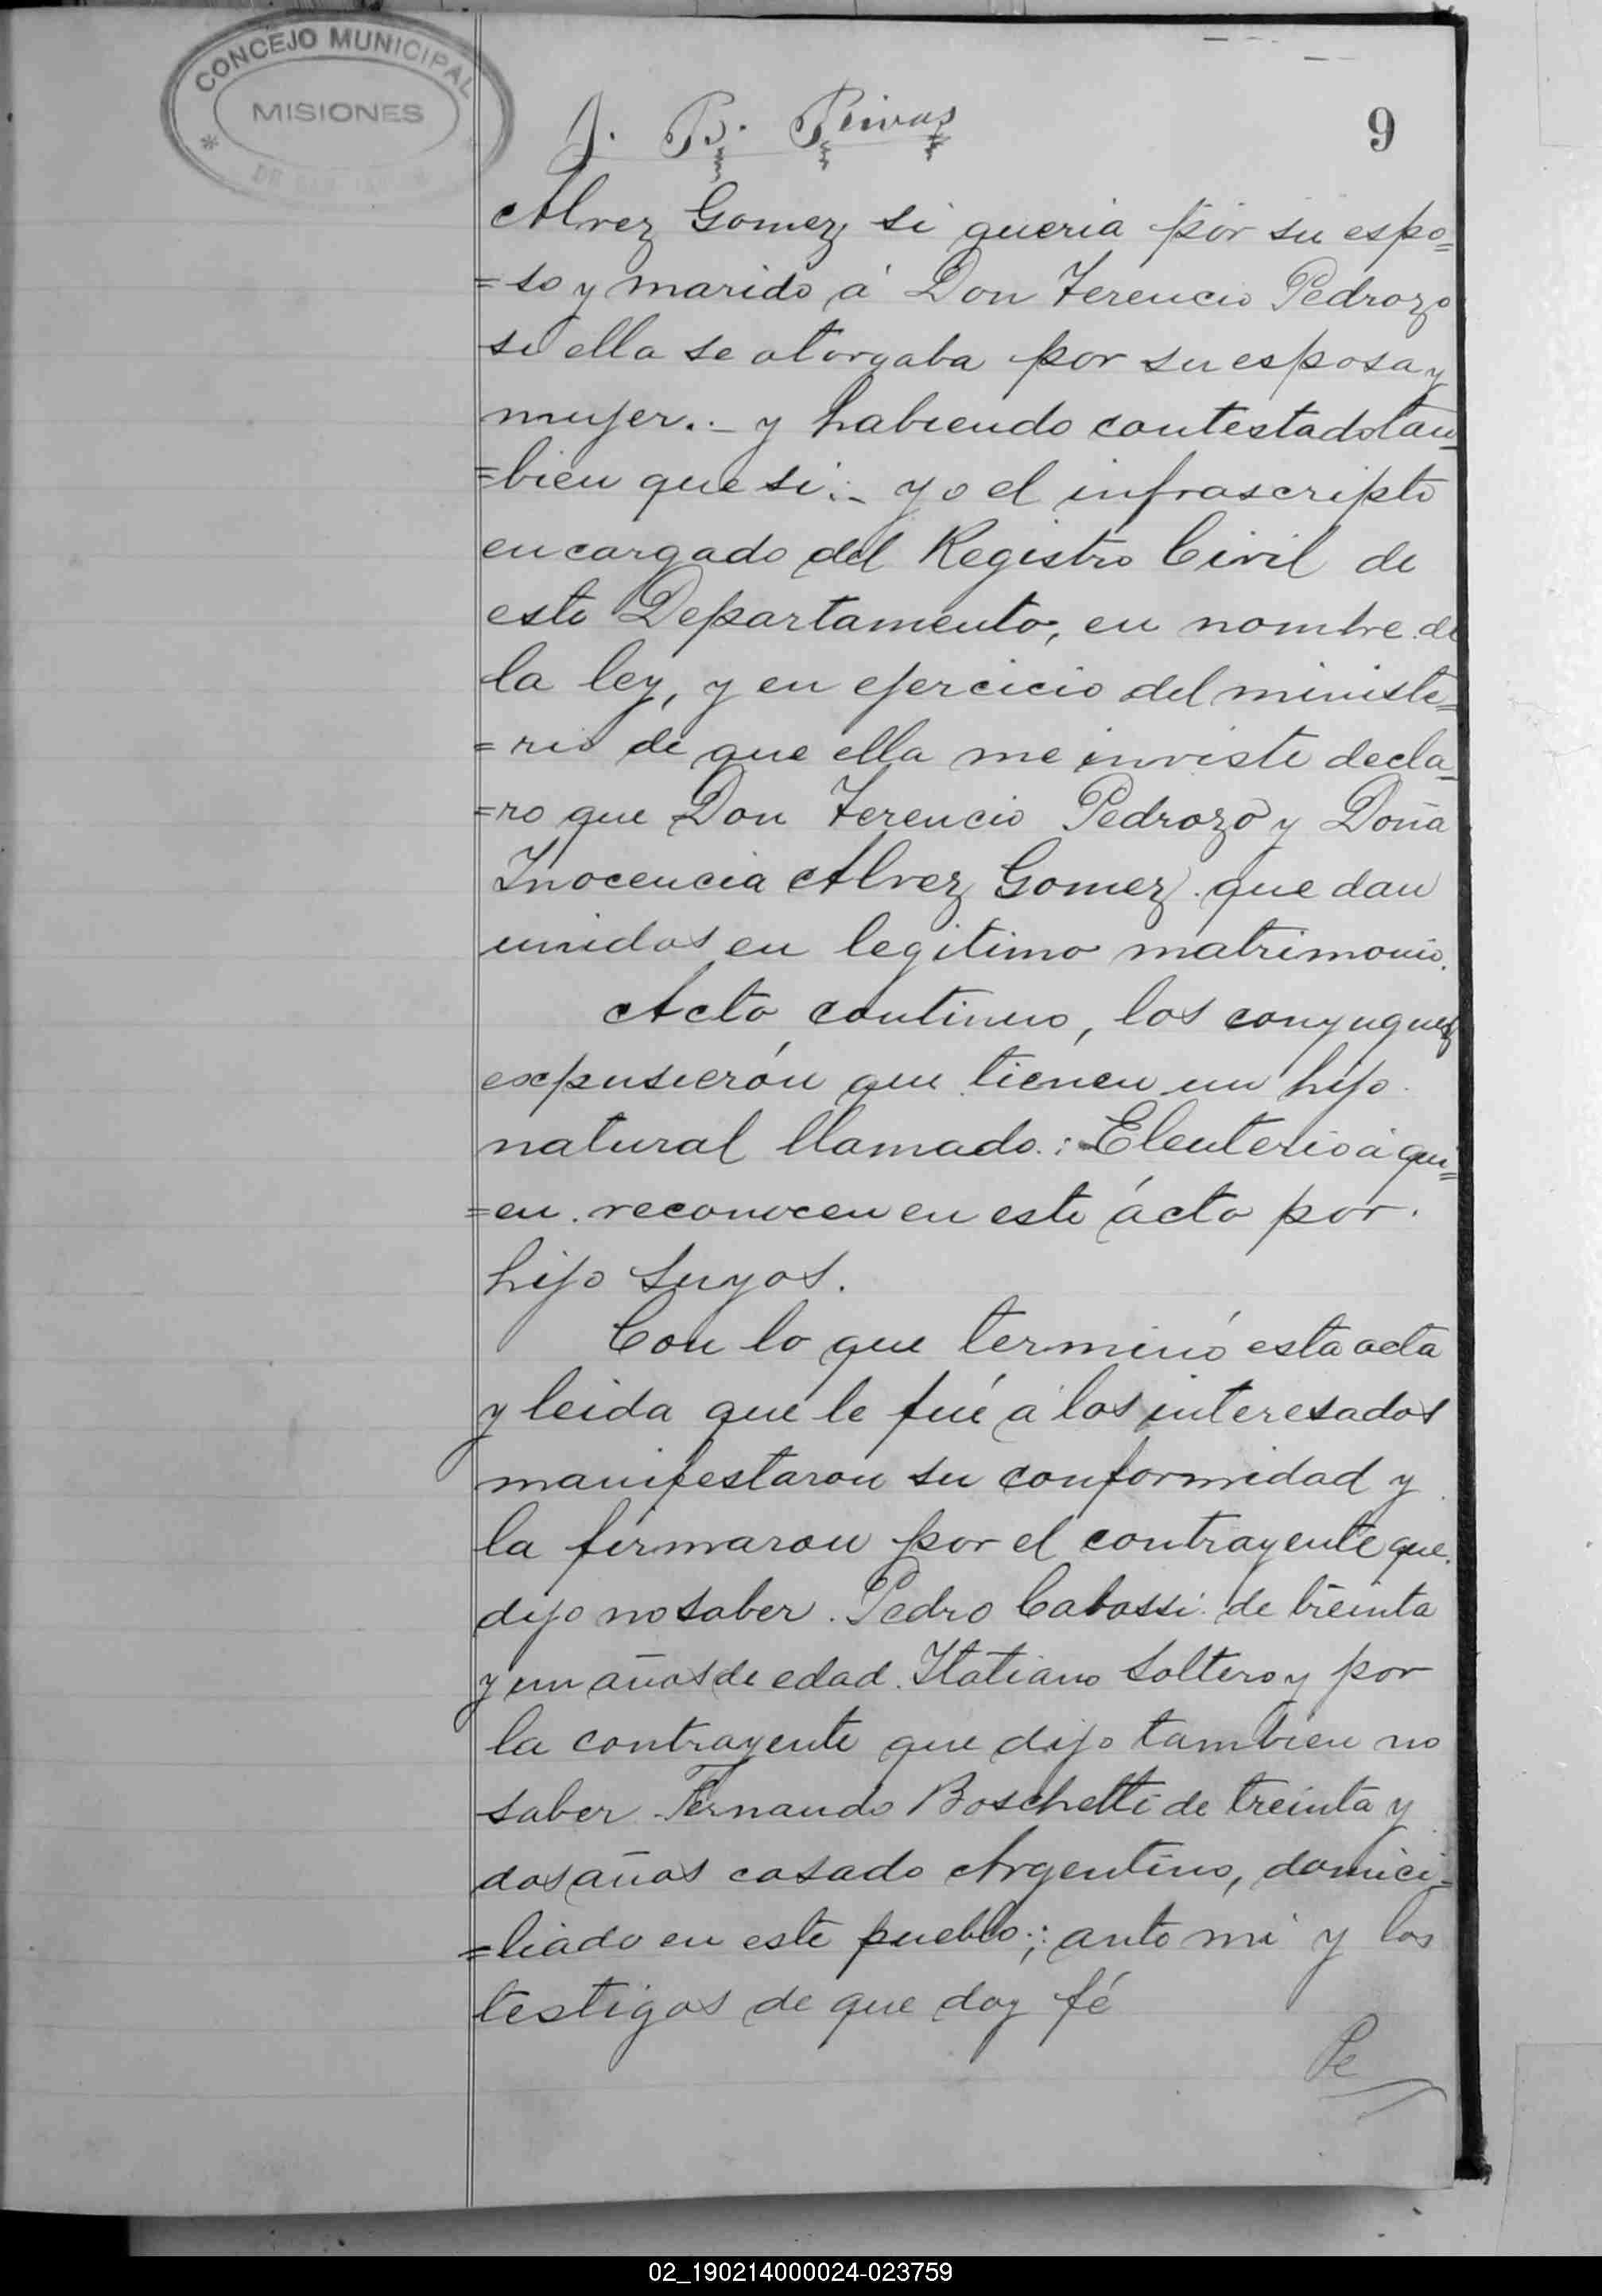 CONCEJO MUNICIPAL
MISIONES
9
J. B. Peivas
Alvez Gomez si queria por su espo=
=so y marido á Don Terencio Pedrozo
si ella se otorgaba por su esposa y
mujer.- y habiendo contestado tan=
=bien que si:- yo el infrascripto
encargado del Registro Civil de
este Departamento, en nombre de
la ley, y en ejercicio del ministe=
=rio de que ella me inviste decla=
=ro que Don Terencio Pedrozo y Doña
Inocencia Alvez Gomez que dan
unidos en legitimo matrimonio.
Acto continuo, los conyugues
expusierón que tienen un hijo
natural llamado: Eleuterio á qui=
=en reconocen en este ácto por
hijo suyos.
Con lo que terminó esta acta
y leida que le fué á los interesados
manifestaron su conformidad y
la firmaron por el contrayente que
dijo no saber. Pedro Cabassi de treinta
y un años de edad. Itatiano Soltero y por
la contrayente que dijo tambien no
saber Fernando Boschetti de treinta y
dos años casado Argentino, domici=
=liado en este pueblo; ante mi y los
testigos de que doy fé
02_190214000024-023759